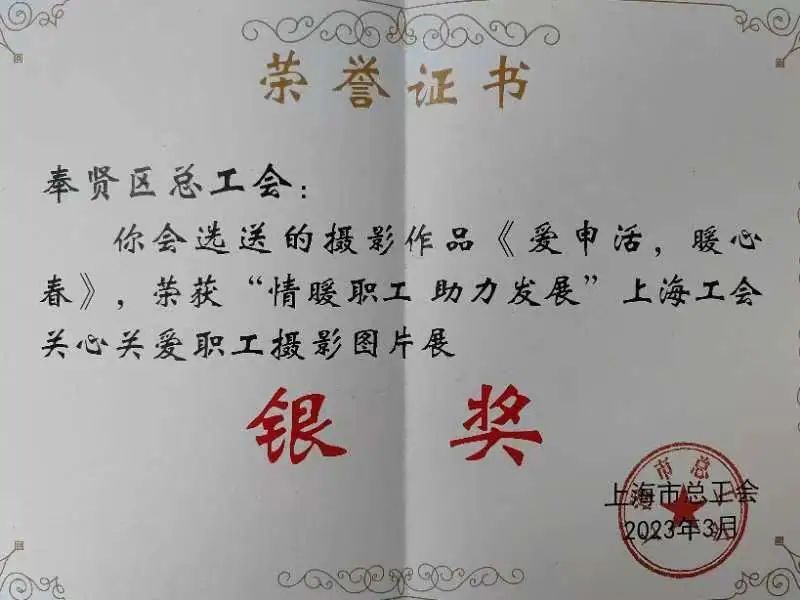 荣誉证书
奉贤区总工会：
你会选送的摄影作品《爱申活，暖心
春》，荣获“情暖职工 助力发展”上海工会
关心关爱职工摄影图片展
银奖
上海市总工会
2023年3月